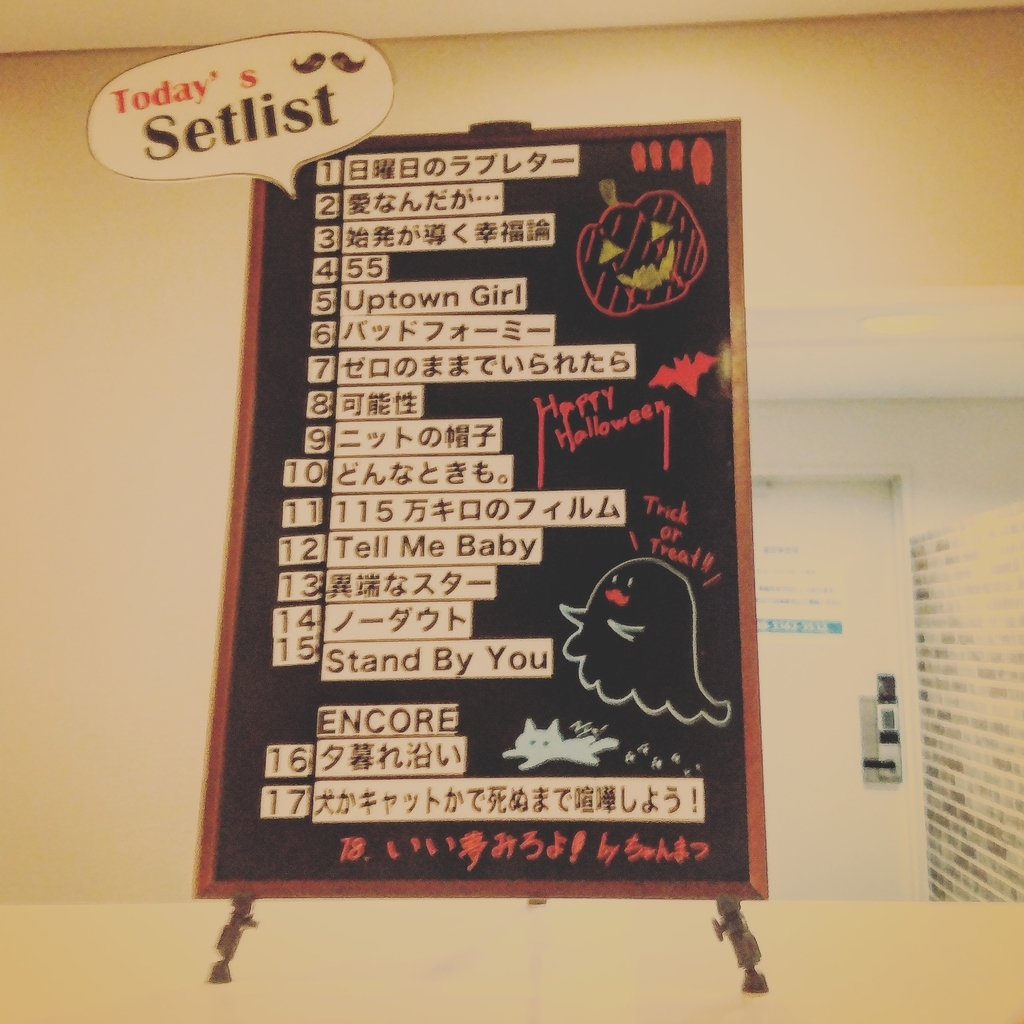 Today's
Setlist
1 日曜日のラブレター
2 愛なんだが…
3 始発が導く幸福論
4 55
5 Uptown Girl
6 バッドフォーミー
7 ゼロのままでいられたら
8 可能性
9 ニットの帽子
10 どんなときも。
11 115万キロのフィルム
12 Tell Me Baby
13 異端なスター
14 ノーダウト
15 Stand By You
ENCORE
16 夕暮れ沿い
17 犬かキャットかで死ぬまで喧嘩しよう!
18. いい夢みろよ! by ちゃんまつ
Happy
Halloween
Trick
or
Treat!!